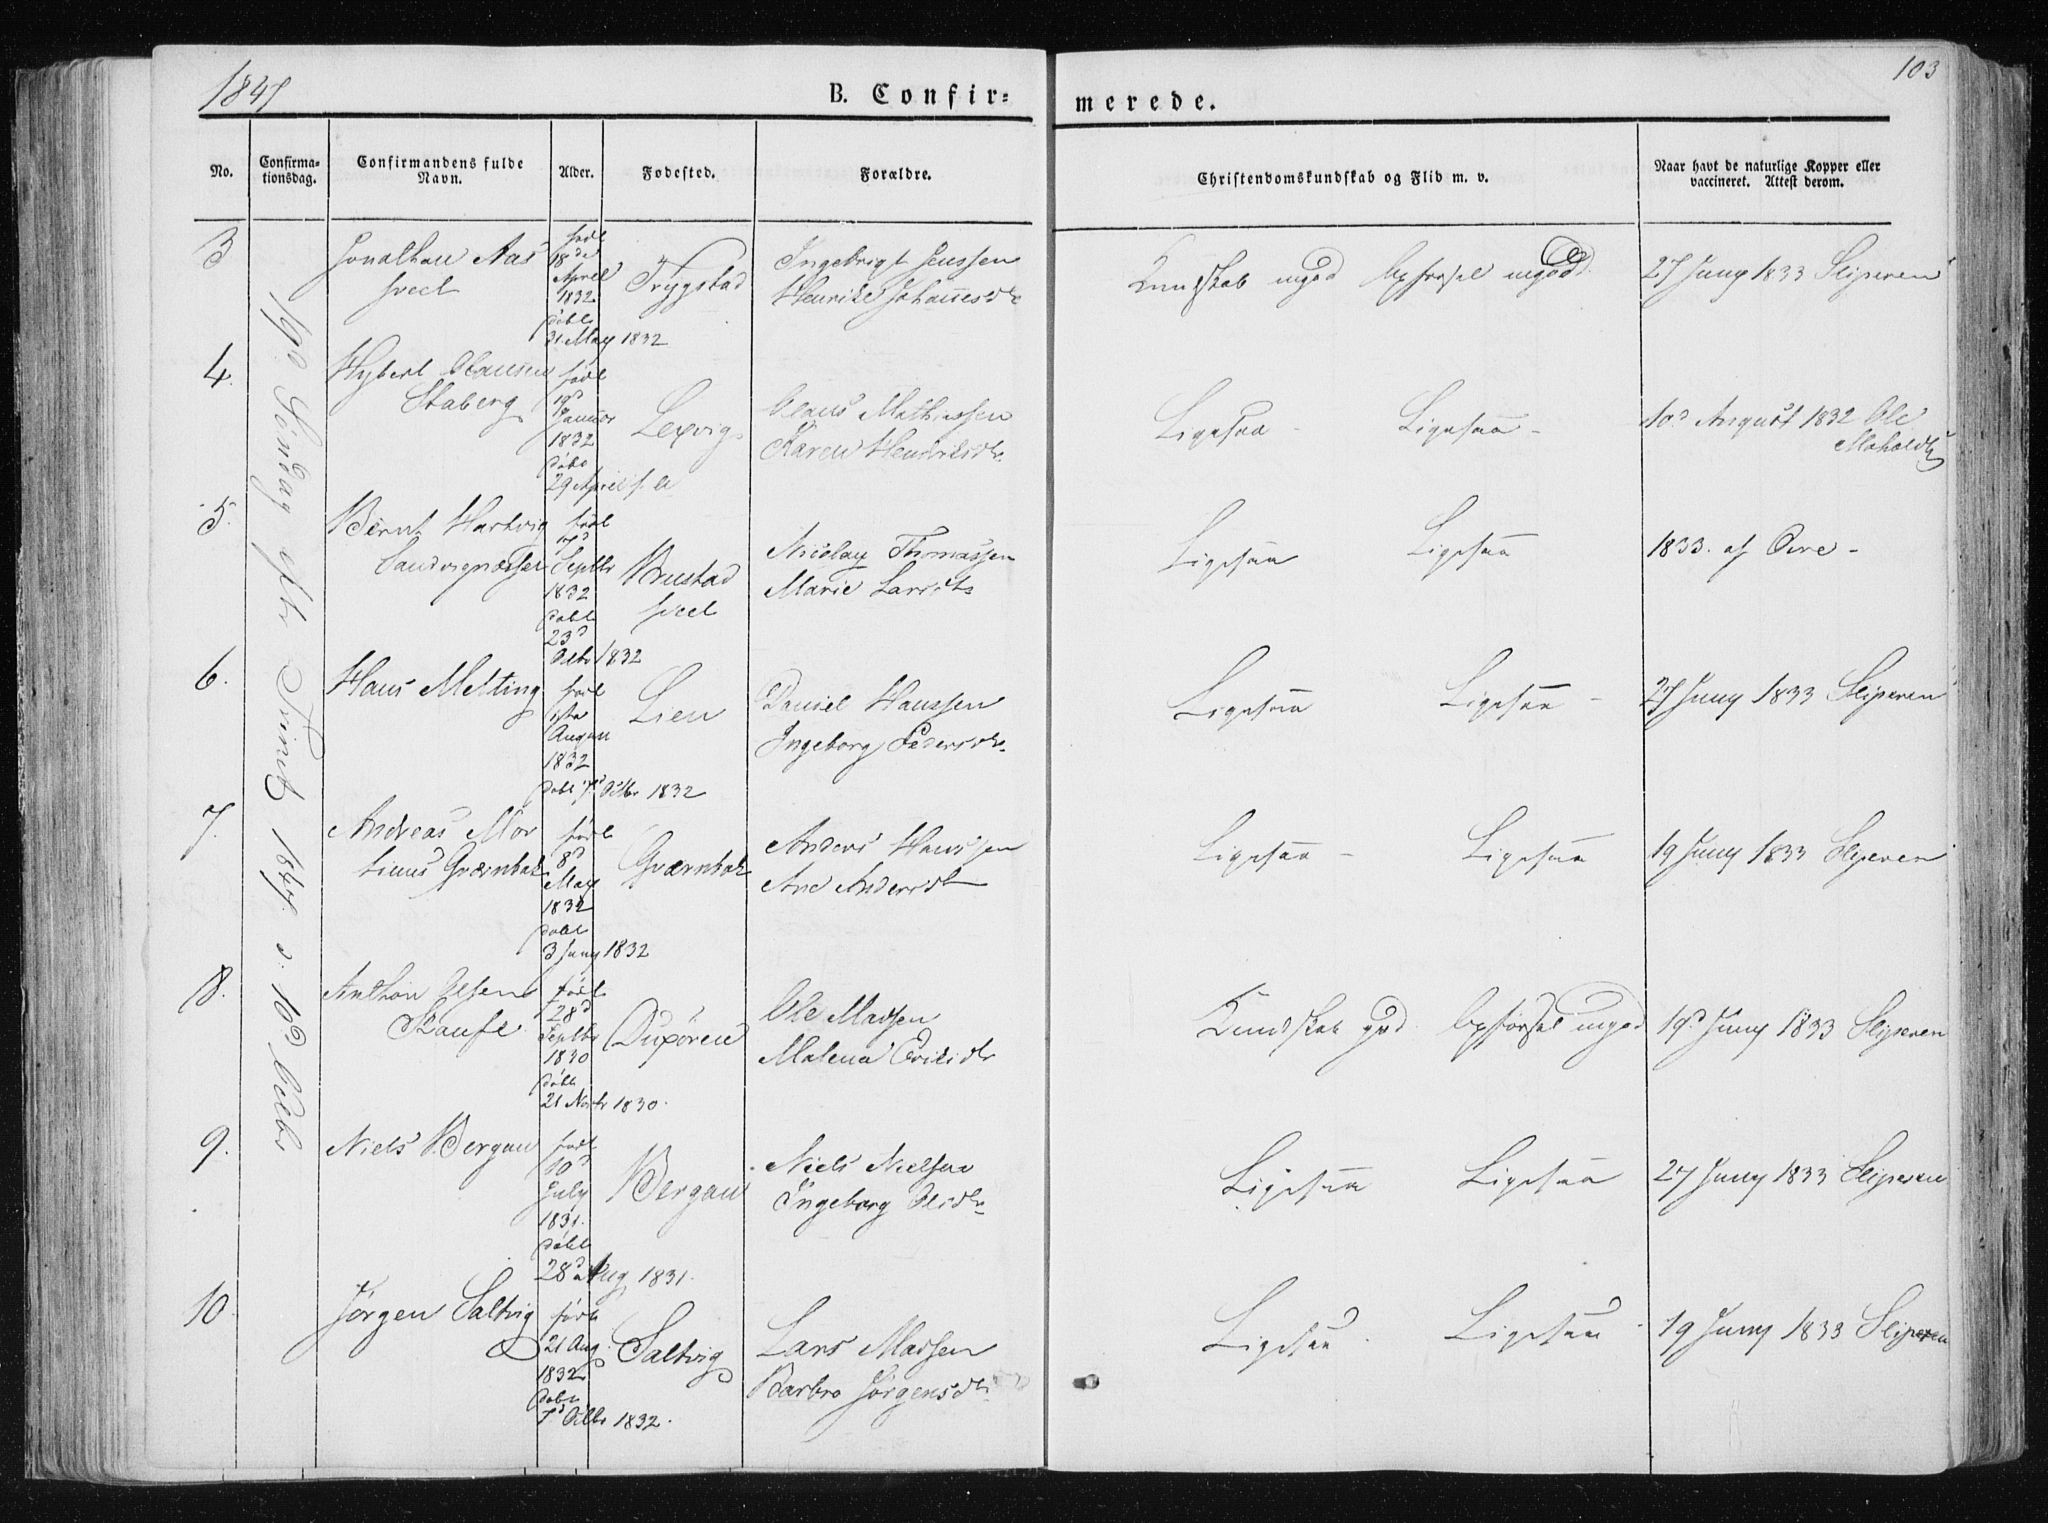 1847
B. Confir=
merede.
103
No.
Confirma-
tionsdag.
Confirmandens fulde
Navn.
Alder.
Fødested.
Forældre.
Christendomskundskab og Flid m. v.
Naar havt de naturlige Kopper eller
vaccineret. Attest derom.
Søndag efter Trinit 1847 d. 10d Octbr
3
Jonathan Aas
født
18de
April
1832
døbt
31 May 1832
Trygstad
Ingebrigt Jenssen
Henrike Johannesdr
Kundskab mgod Opførsel mgod.
27 Juny 1833 Slipern
4.
Hybert Olaussen
Staberg
født
19d
Januar
1832
døbt
29 April s. A
Lexvig
Olaus Mathiassen
Karen Hendriksdr.
Ligesaa - Ligesaa -
10d August 1832 Ole
Moholdt
5.
Bernt Hartvig
Sandvignæsset
født
17d
Septbr
1832
døbt
23d
Octbr 1832
Brustad
Nicolay Thomassen
Marie Larsdtr
Ligesaa Ligesaa
1833. af Ovre -
6.
Hans Melting
født
1ste
August
1832
døbt 7d Octbr 1832
Lien
Daniel Hanssen
Ingeborg Pedersdr.
Ligesaa Ligesaa -
27 Juny 1833 Sliperen
7.
Andreas Mor
tinus Qværnbak
født
8d
May
1832
døbt
3 Juny 1832
Qværnbak
Anders Hanssen
Ane Andersdr
Ligesaa - Ligesaa
19 Juny 1833 Sliperen
8.
Anthon Olsen
født
28d
Septbr
1830
døbt
21 Novbr 1830.
Duxøren
Ole Madsen
Malena Eriksdr
Kundskab god Opførsel mgod
19d Juny 1833 Sliperen
9.
Niels Bergan
født
10d
July
1831.
døbt
28d Aug 1831.
Bergan
Niels Nielsen
Ingeborg Olsdr.
Ligesaa Ligesaa
27 Juny 1833 Sliperen
10.
Jørgen Saltvig
født
21 Aug.
1832
døbt
7d Octbr 1832.
Saltvig
Lars Madsen
Barbro Jørgensdr
Ligesaa. Ligesaa.
19 Juny 1833 Sliperen